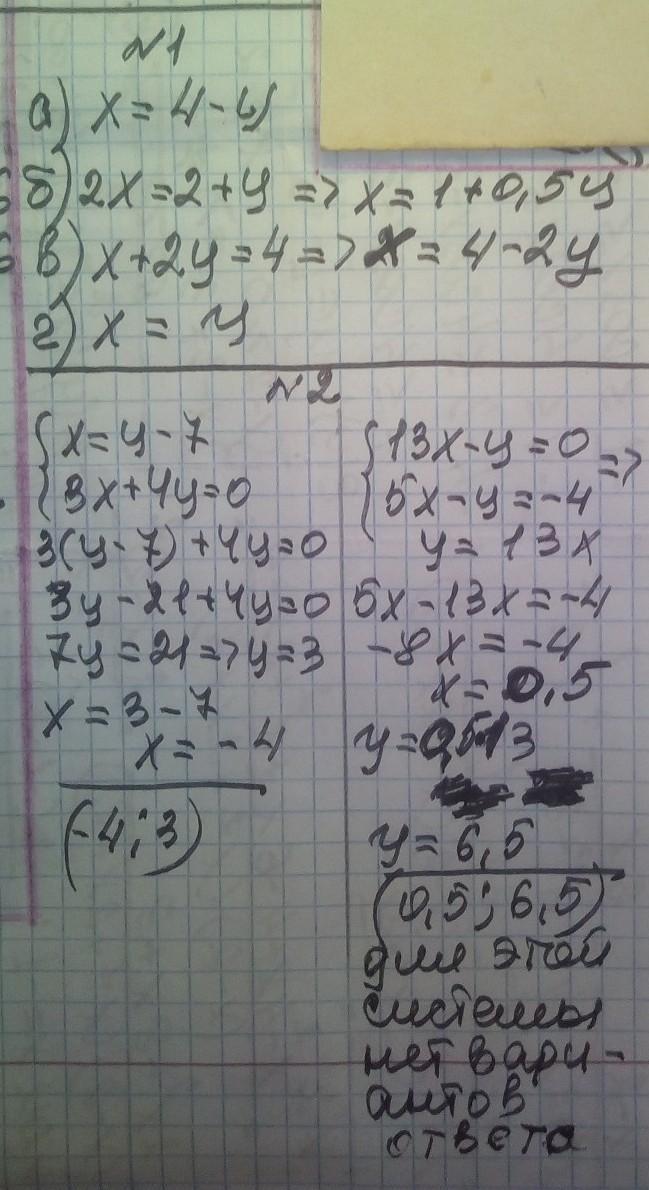 №1
а) x = 4 - y
б) 2x = 2 + y => x = 1 + 0,5y
в) x + 2y = 4 => x = 4 - 2y
г) x = y
№2
{ x = y - 7
{ 3x + 4y = 0
3(y - 7) + 4y = 0
3y - 21 + 4y = 0
7y = 21 => y = 3
x = 3 - 7
x = -4
(-4; 3)
{ 13x - y = 0
{ 5x - y = -4 =>
y = 13x
5x - 13x = -4
-8x = -4
x = 0,5
y = 0,5·13
y = 6,5
(0,5; 6,5)
для этой
системы
нет вари-
антов
ответа